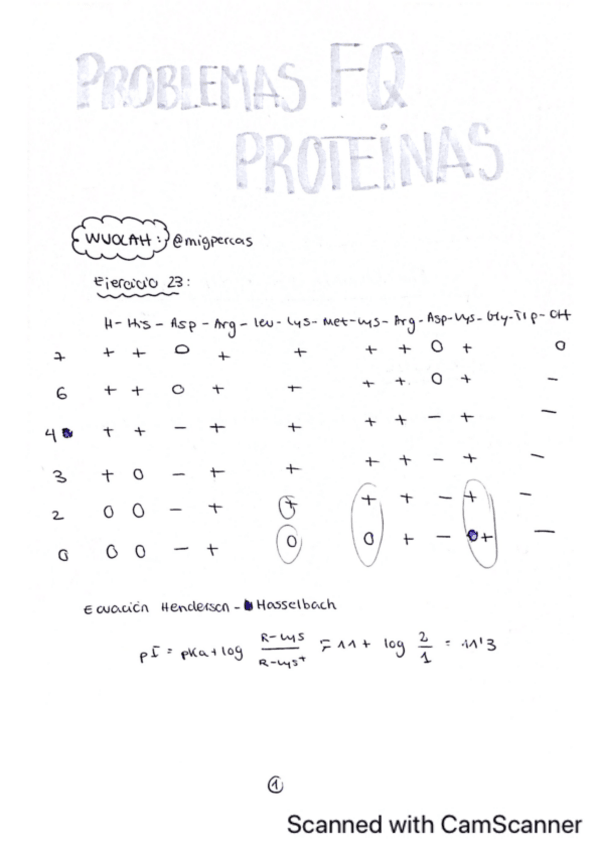 PROBLEMAS FQ
PROTEÍNAS
WUOLAH: @migpercas
Ejercicio 23:
H- His - Asp - Arg - leu - Lys - Met - Lys - Arg - Asp - Lys - Gly - Trp - OH
7 + + 0 + + + + 0 + 0
6 + + 0 + + + + 0 + -
4 + + - + + + + - + -
3 + 0 - + + + + - + -
2 0 0 - + + + + - + -
0 0 0 - + 0 0 + - + -
Ecuación Henderson - Hasselbach
pI = pKa + log R-Lys / R-Lys+ = 11 + log 2/1 = 11'3
1
Scanned with CamScanner